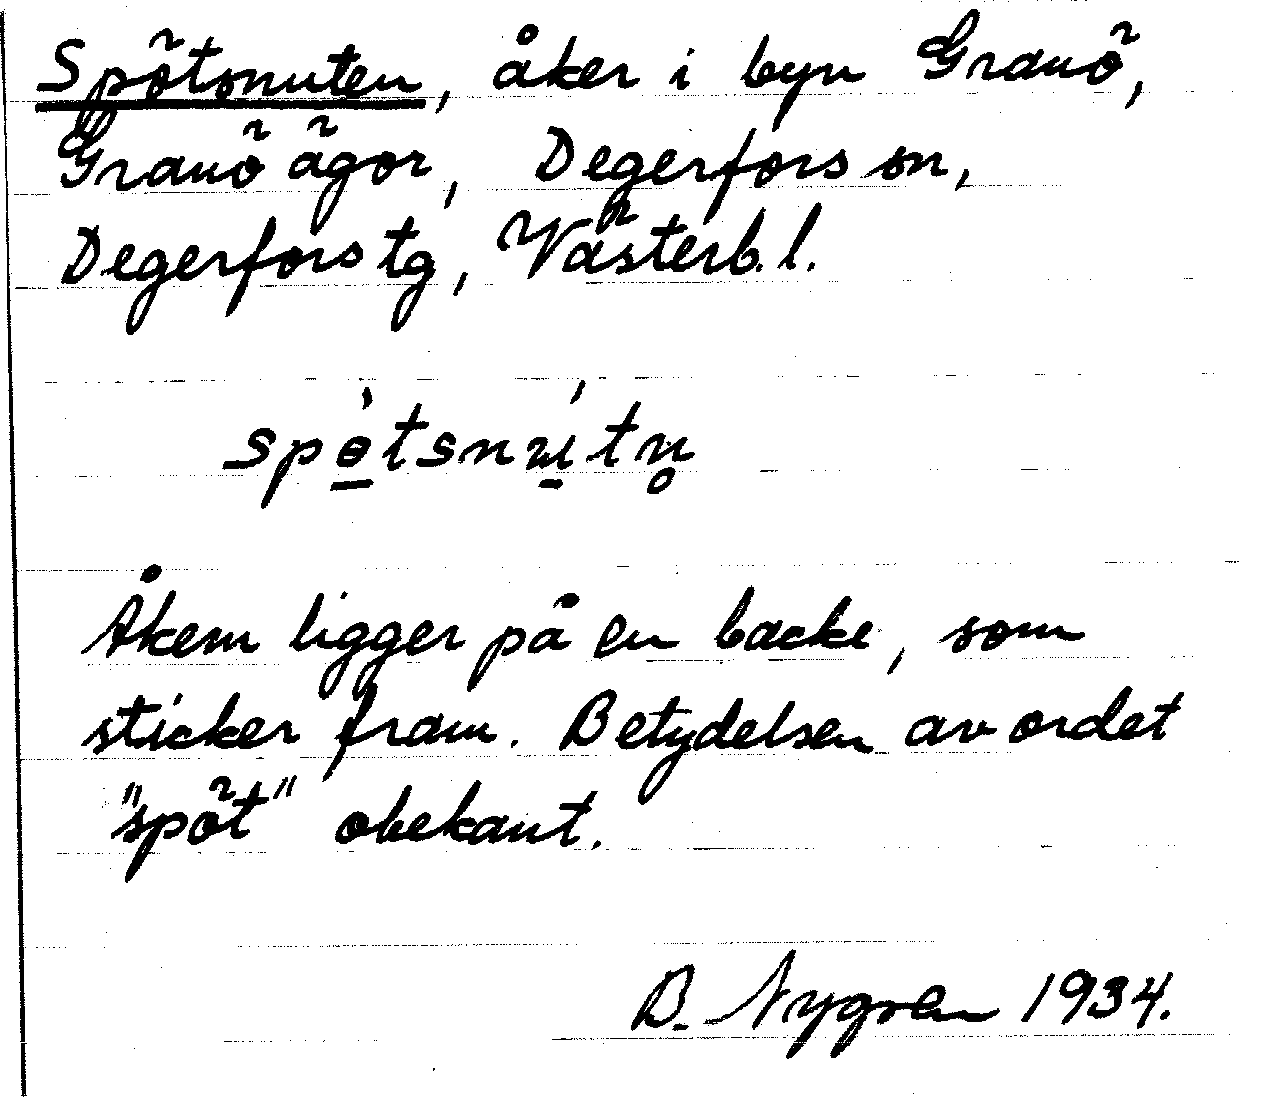 Spötsnuten, åker i byn Granö,
Granö ägor, Degerfors sn,
Degerfors tg, Västerb. l.
Åkern ligger på en backe, som
sticker fram. Betydelsen av ordet
"spöt" obekant.
B. Nygren 1934.